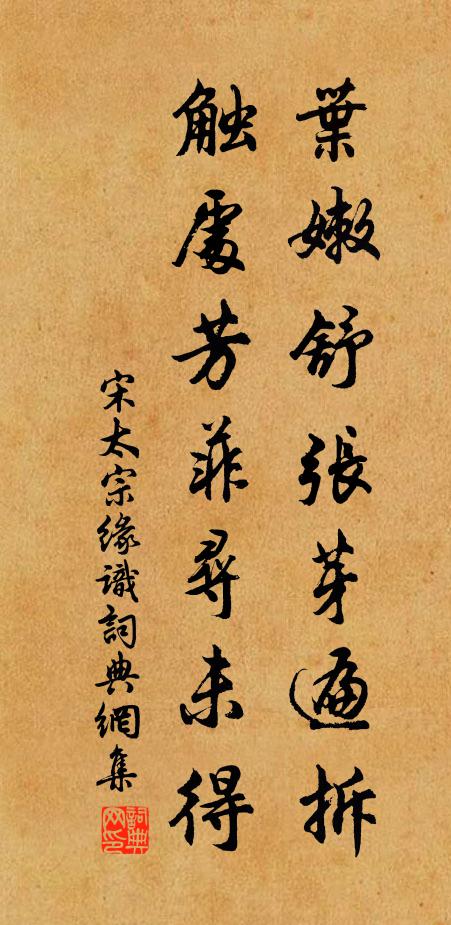 葉嫩舒張芽遍拆
觸處芳菲尋未得
宋太宗緣識詞典網集
詞典网印